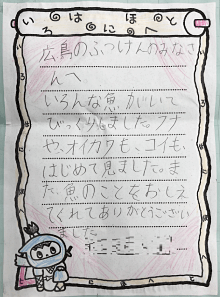 いろはにほへと
広島のぶっけんのみなさ
んへ
いろんな魚がいて
びっくりしました。フナ
や、オイカワも、コイも、
はじめて見ました。ま
た魚のことをおしえ
てくれてありがとうござい
ました。